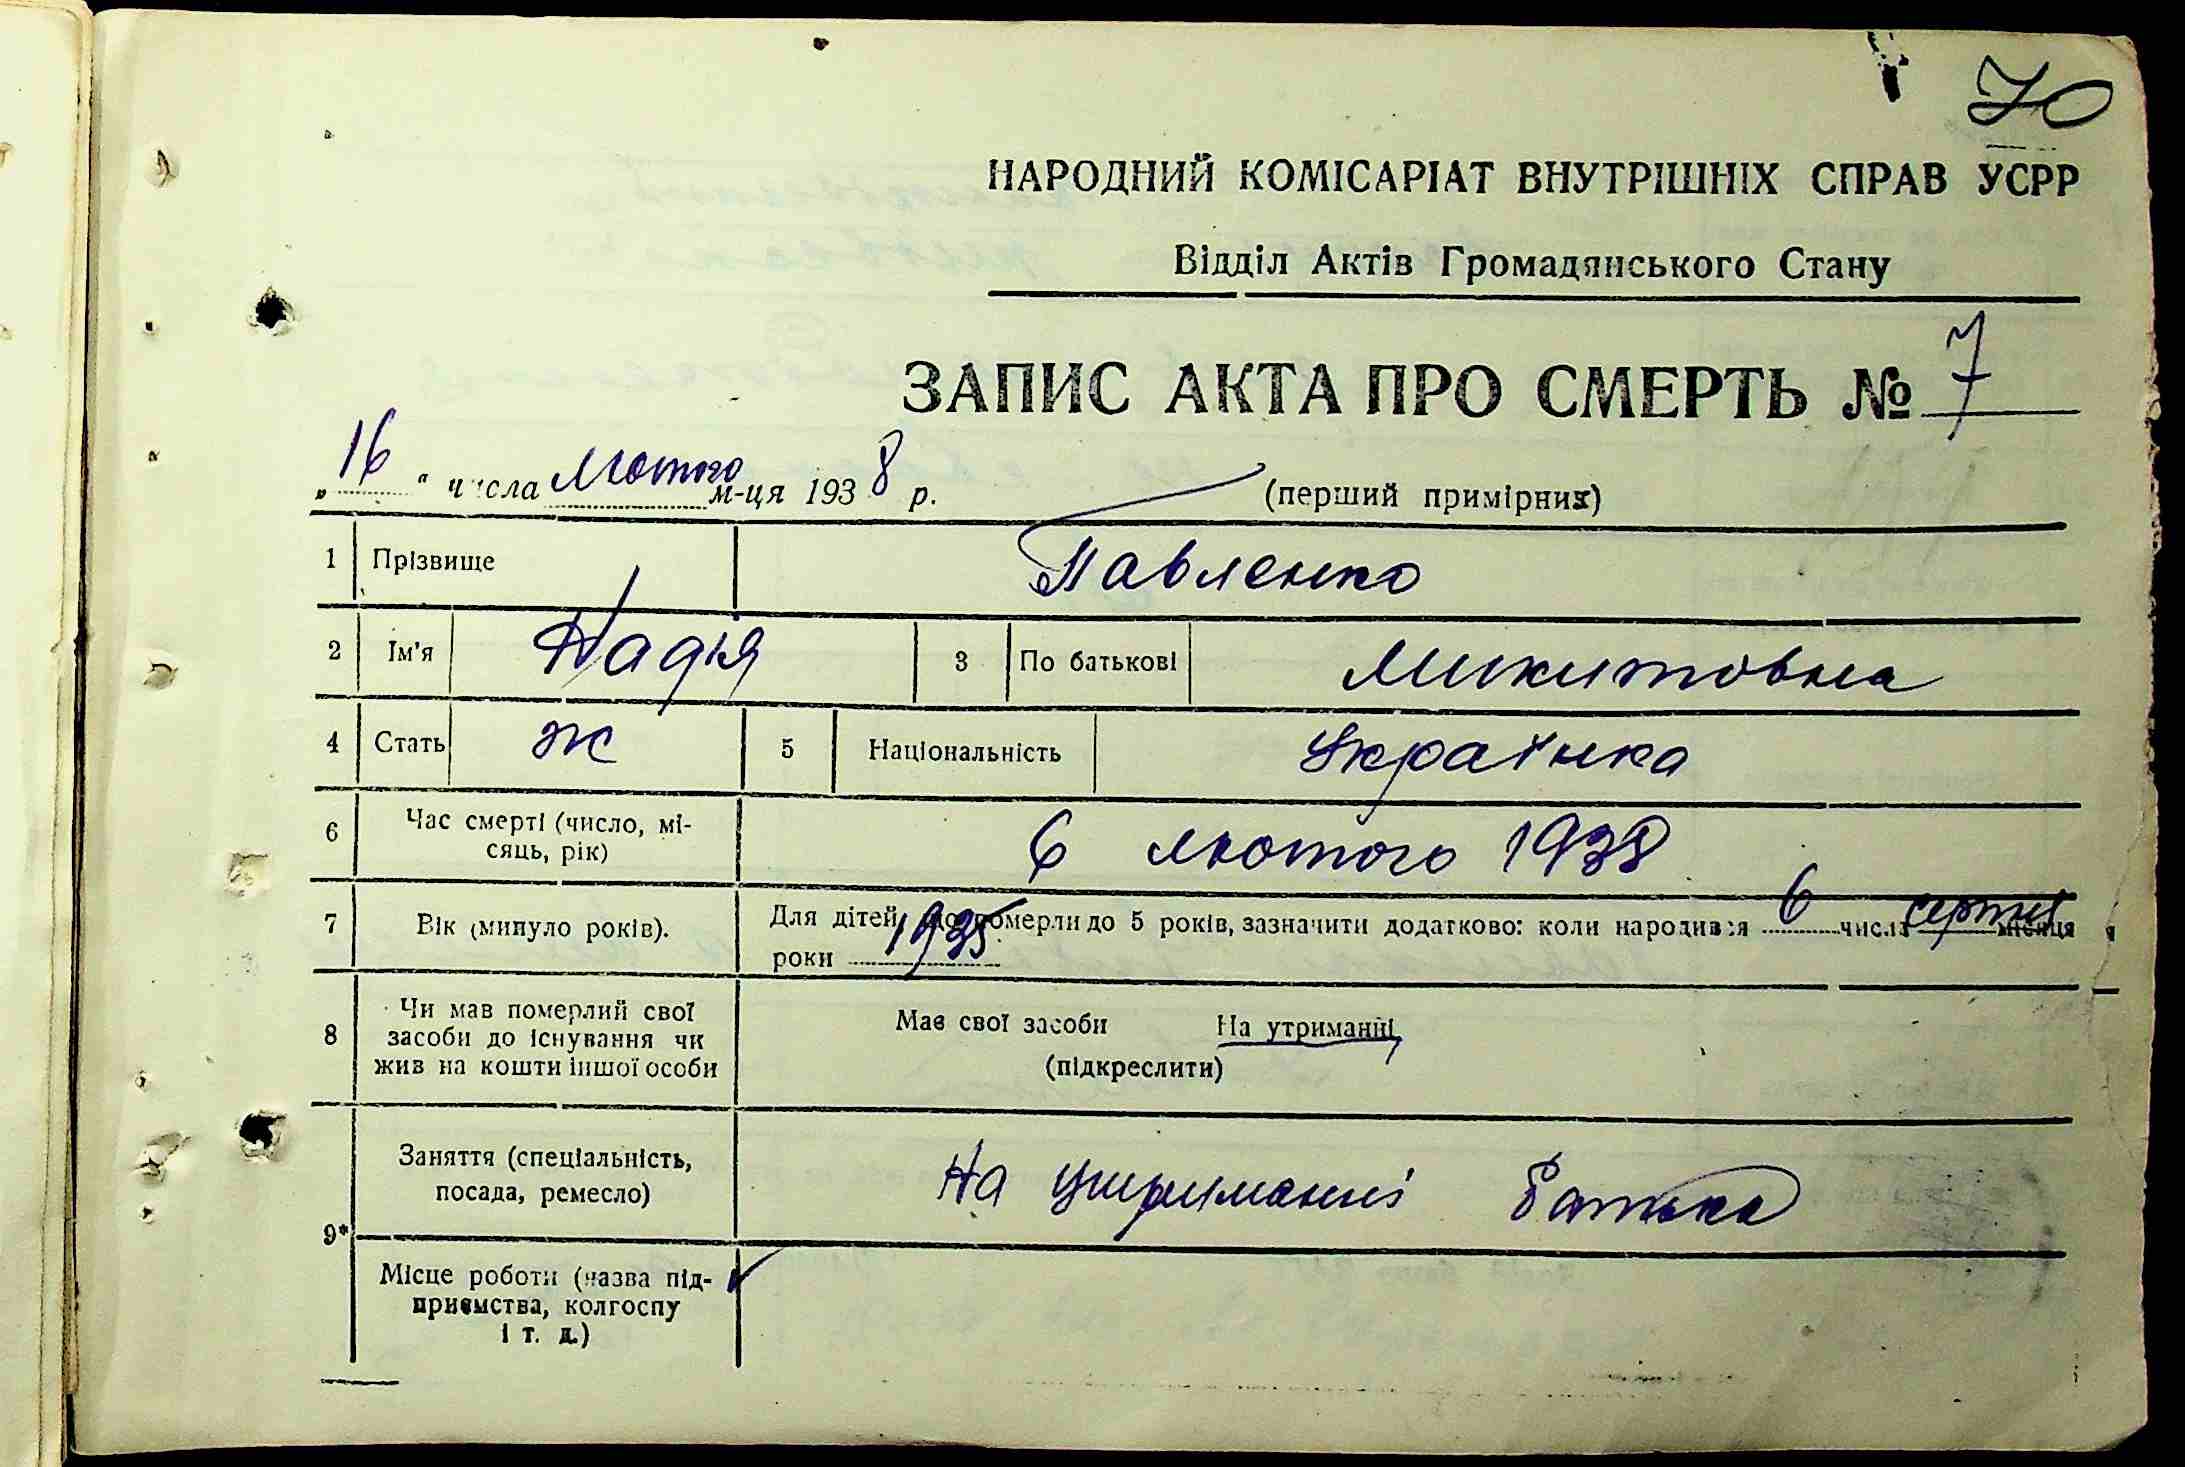 70
НАРОДНИЙ КОМІСАРІАТ ВНУТРІШНІХ СПРАВ УСРР
Відділ Актів Громадянського Стану
ЗАПИС АКТА ПРО СМЕРТЬ № 7
„16“ числа лютого м-ця 1938 р. (перший примірник)
1 Прізвище Павленко
2 Ім'я Надія 3 По батькові Микитовна
4 Стать ж 5 Національність Українка
6 Час смерті (число, мі-
сяць, рік) 6 лютого 1938
7 Вік (минуло років). Для дітей, що померли до 5 років, зазначити додатково: коли народився 6 числа серпня місяця
роки 1935
8 Чи мав померлий свої
засоби до існування чи
жив на кошти іншої особи
Має свої засоби На утриманні
(підкреслити)
9* Заняття (спеціальність,
посада, ремесло) На утриманні батька
Місце роботи (назва під-
приємства, колгоспу
і т. д.)